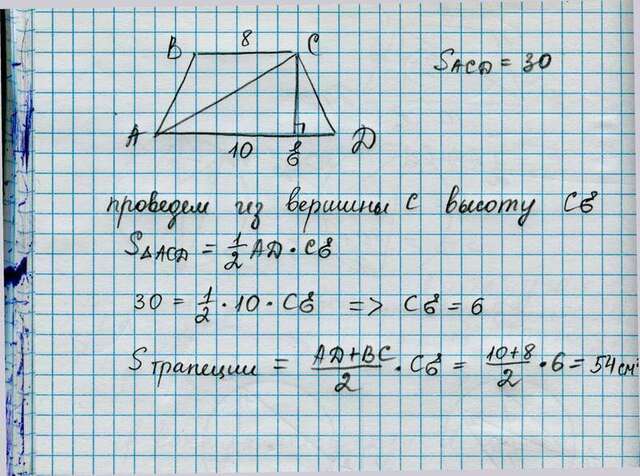 8
B C
S ACD = 30
A D
10 E
проведем из вершины C высоту CE
S△ACD = 1/2 AD · CE
30 = 1/2 · 10 · CE => CE = 6
S трапеции = (AD+BC)/2 · CE = (10+8)/2 · 6 = 54 см²